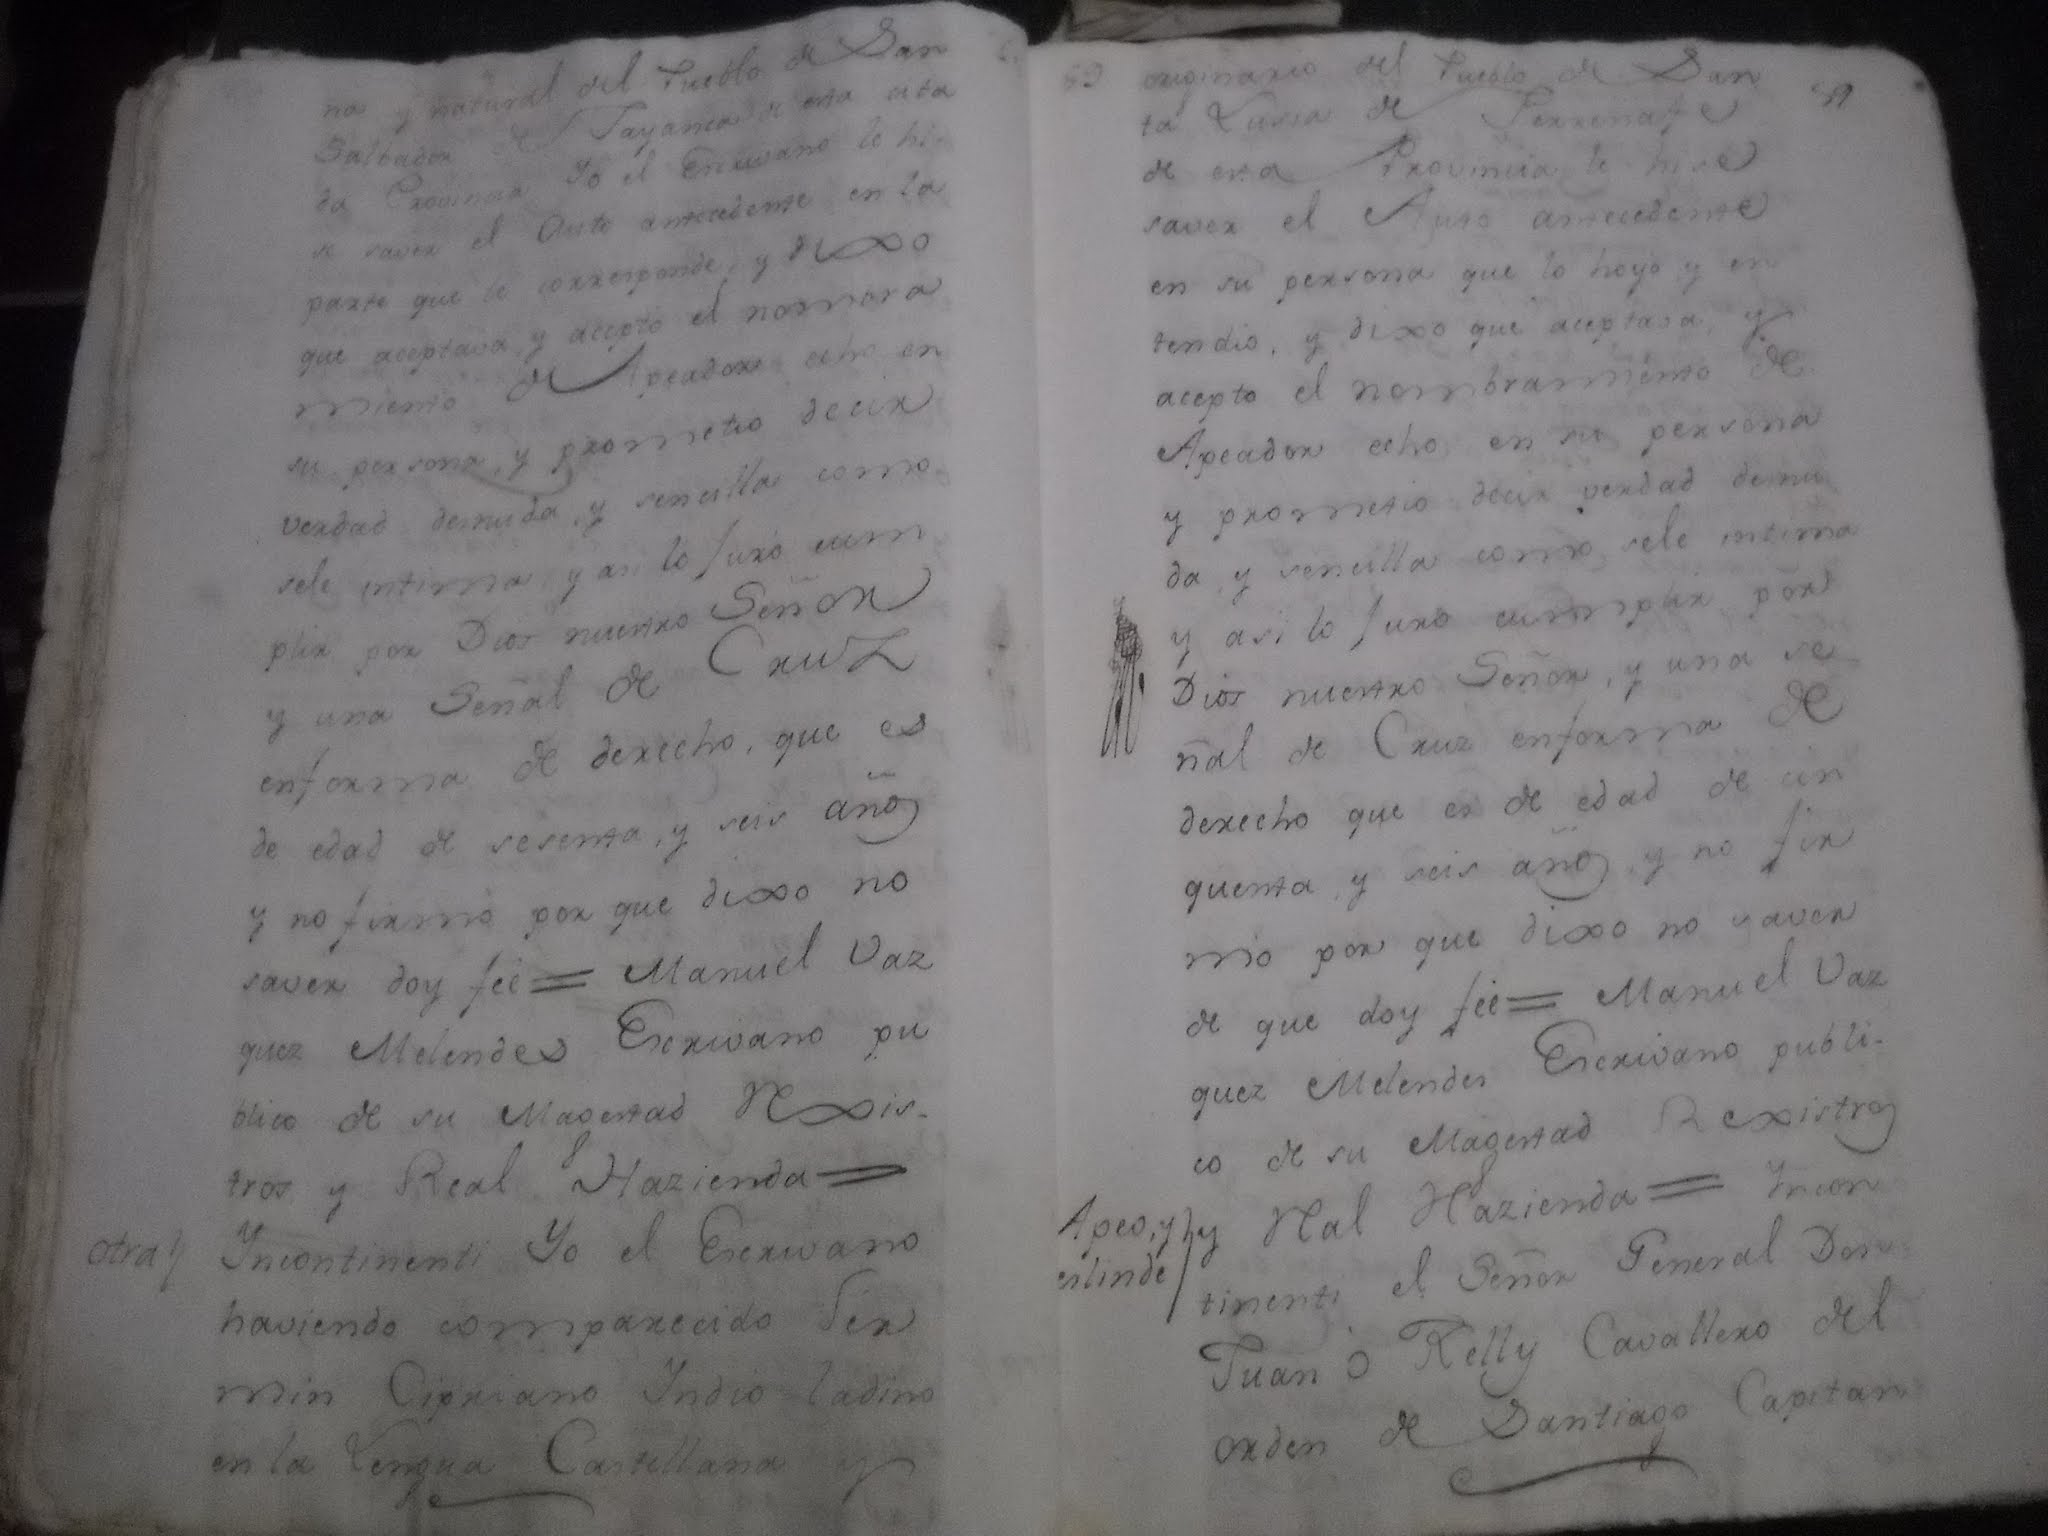 na y natural del Pueblo de San
Salbador de Jayanca de esta cita
da Provincia Yo el Escrivano le hi-
se saver el Auto antecedente en la
parte que le corresponde, y dixo
que aceptava, y acepto el nombra
miento de Apeador echo en
su persona, y prometio decir
verdad desnuda, y sencilla como
sele intima, y asi lo Juro cum
plir por Dios nuestro Señor
y una Señal de Cruz
enforma de derecho, que es
de edad de sesenta, y seis años
y no firmo por que dixo no
saver doy feé = Manuel Vaz
quez Melendes Escrivano pu
blico de su Magestad Rexis-
tros y Real Hazienda =
otra Yncontinenti Yo el Escrivano
haviendo comparecido Fer
min Cipriano Yndio ladino
en la Lengua Castellana y
59 originario del Pueblo de San 59
ta Lusia de Ferreñafe
de esta Provincia le hise
saver el Auto antecedente
en su persona que lo hoyo y en
tendio, y dixo que aceptava, y
acepto el nombramiento de
Apeador echo en su persona
y prometio decir verdad desnu
da, y sencilla como sele intima
y asi lo Juro cumplir por
Dios nuestro Señor, y una se
ñal de Cruz enforma de
derecho que es de edad de cin
quenta, y seis años, y no fir
mo por que dixo no saver
de que doy feé = Manuel Vaz
quez Melendes Escrivano publi-
co de su Magestad Rexistros
y Rial Hazienda = Yncon
Apeo, y
eslinde
tinenti el Señor General Don
Juan ó Kelly Cavallero del
orden de Santiago Capitan